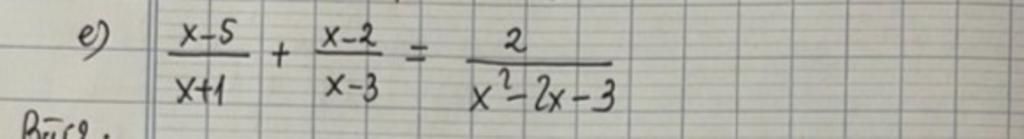 e) (x-5)/(x+1) + (x-2)/(x-3) = 2/(x²-2x-3)